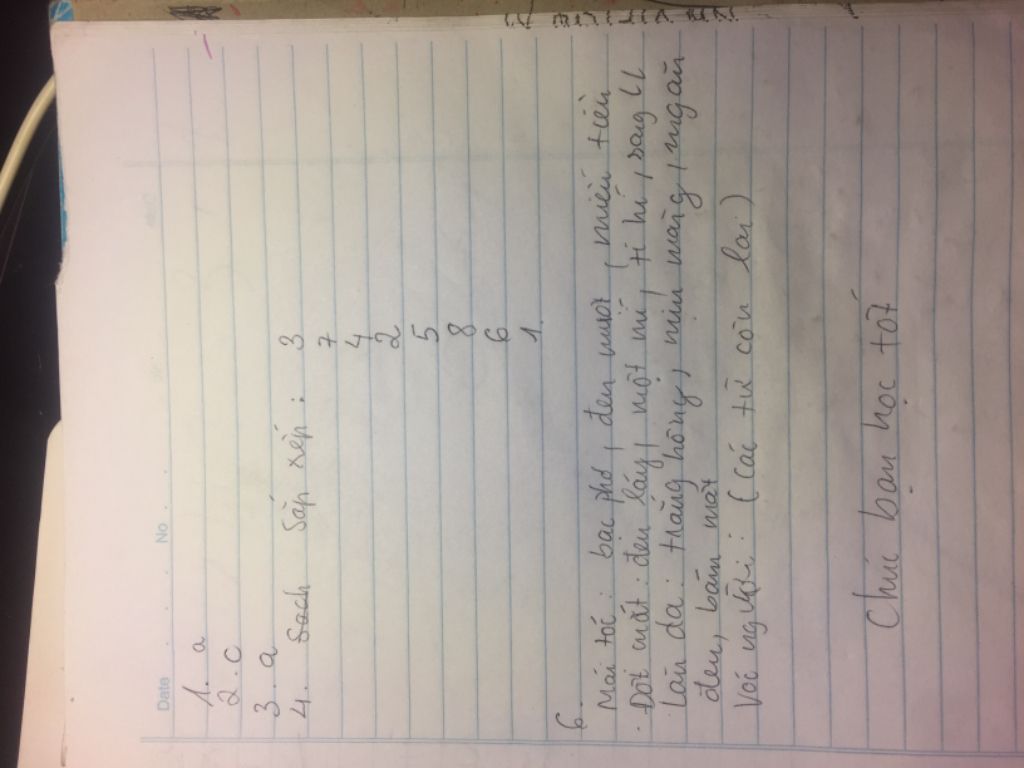 Date No.
1. a
2. c
3. a
4. Sach Sắp xếp: 3
7
4
2
5
8
6
1
6.
Mái tóc: bạc phơ, đen mượt, 
Đôi mắt: đen láy, một mí, ti hí,
Làn da: trắng hồng, mịn màng,
đen,
Vóc người: (Các từ còn lại)
Chúc bạn học tốt